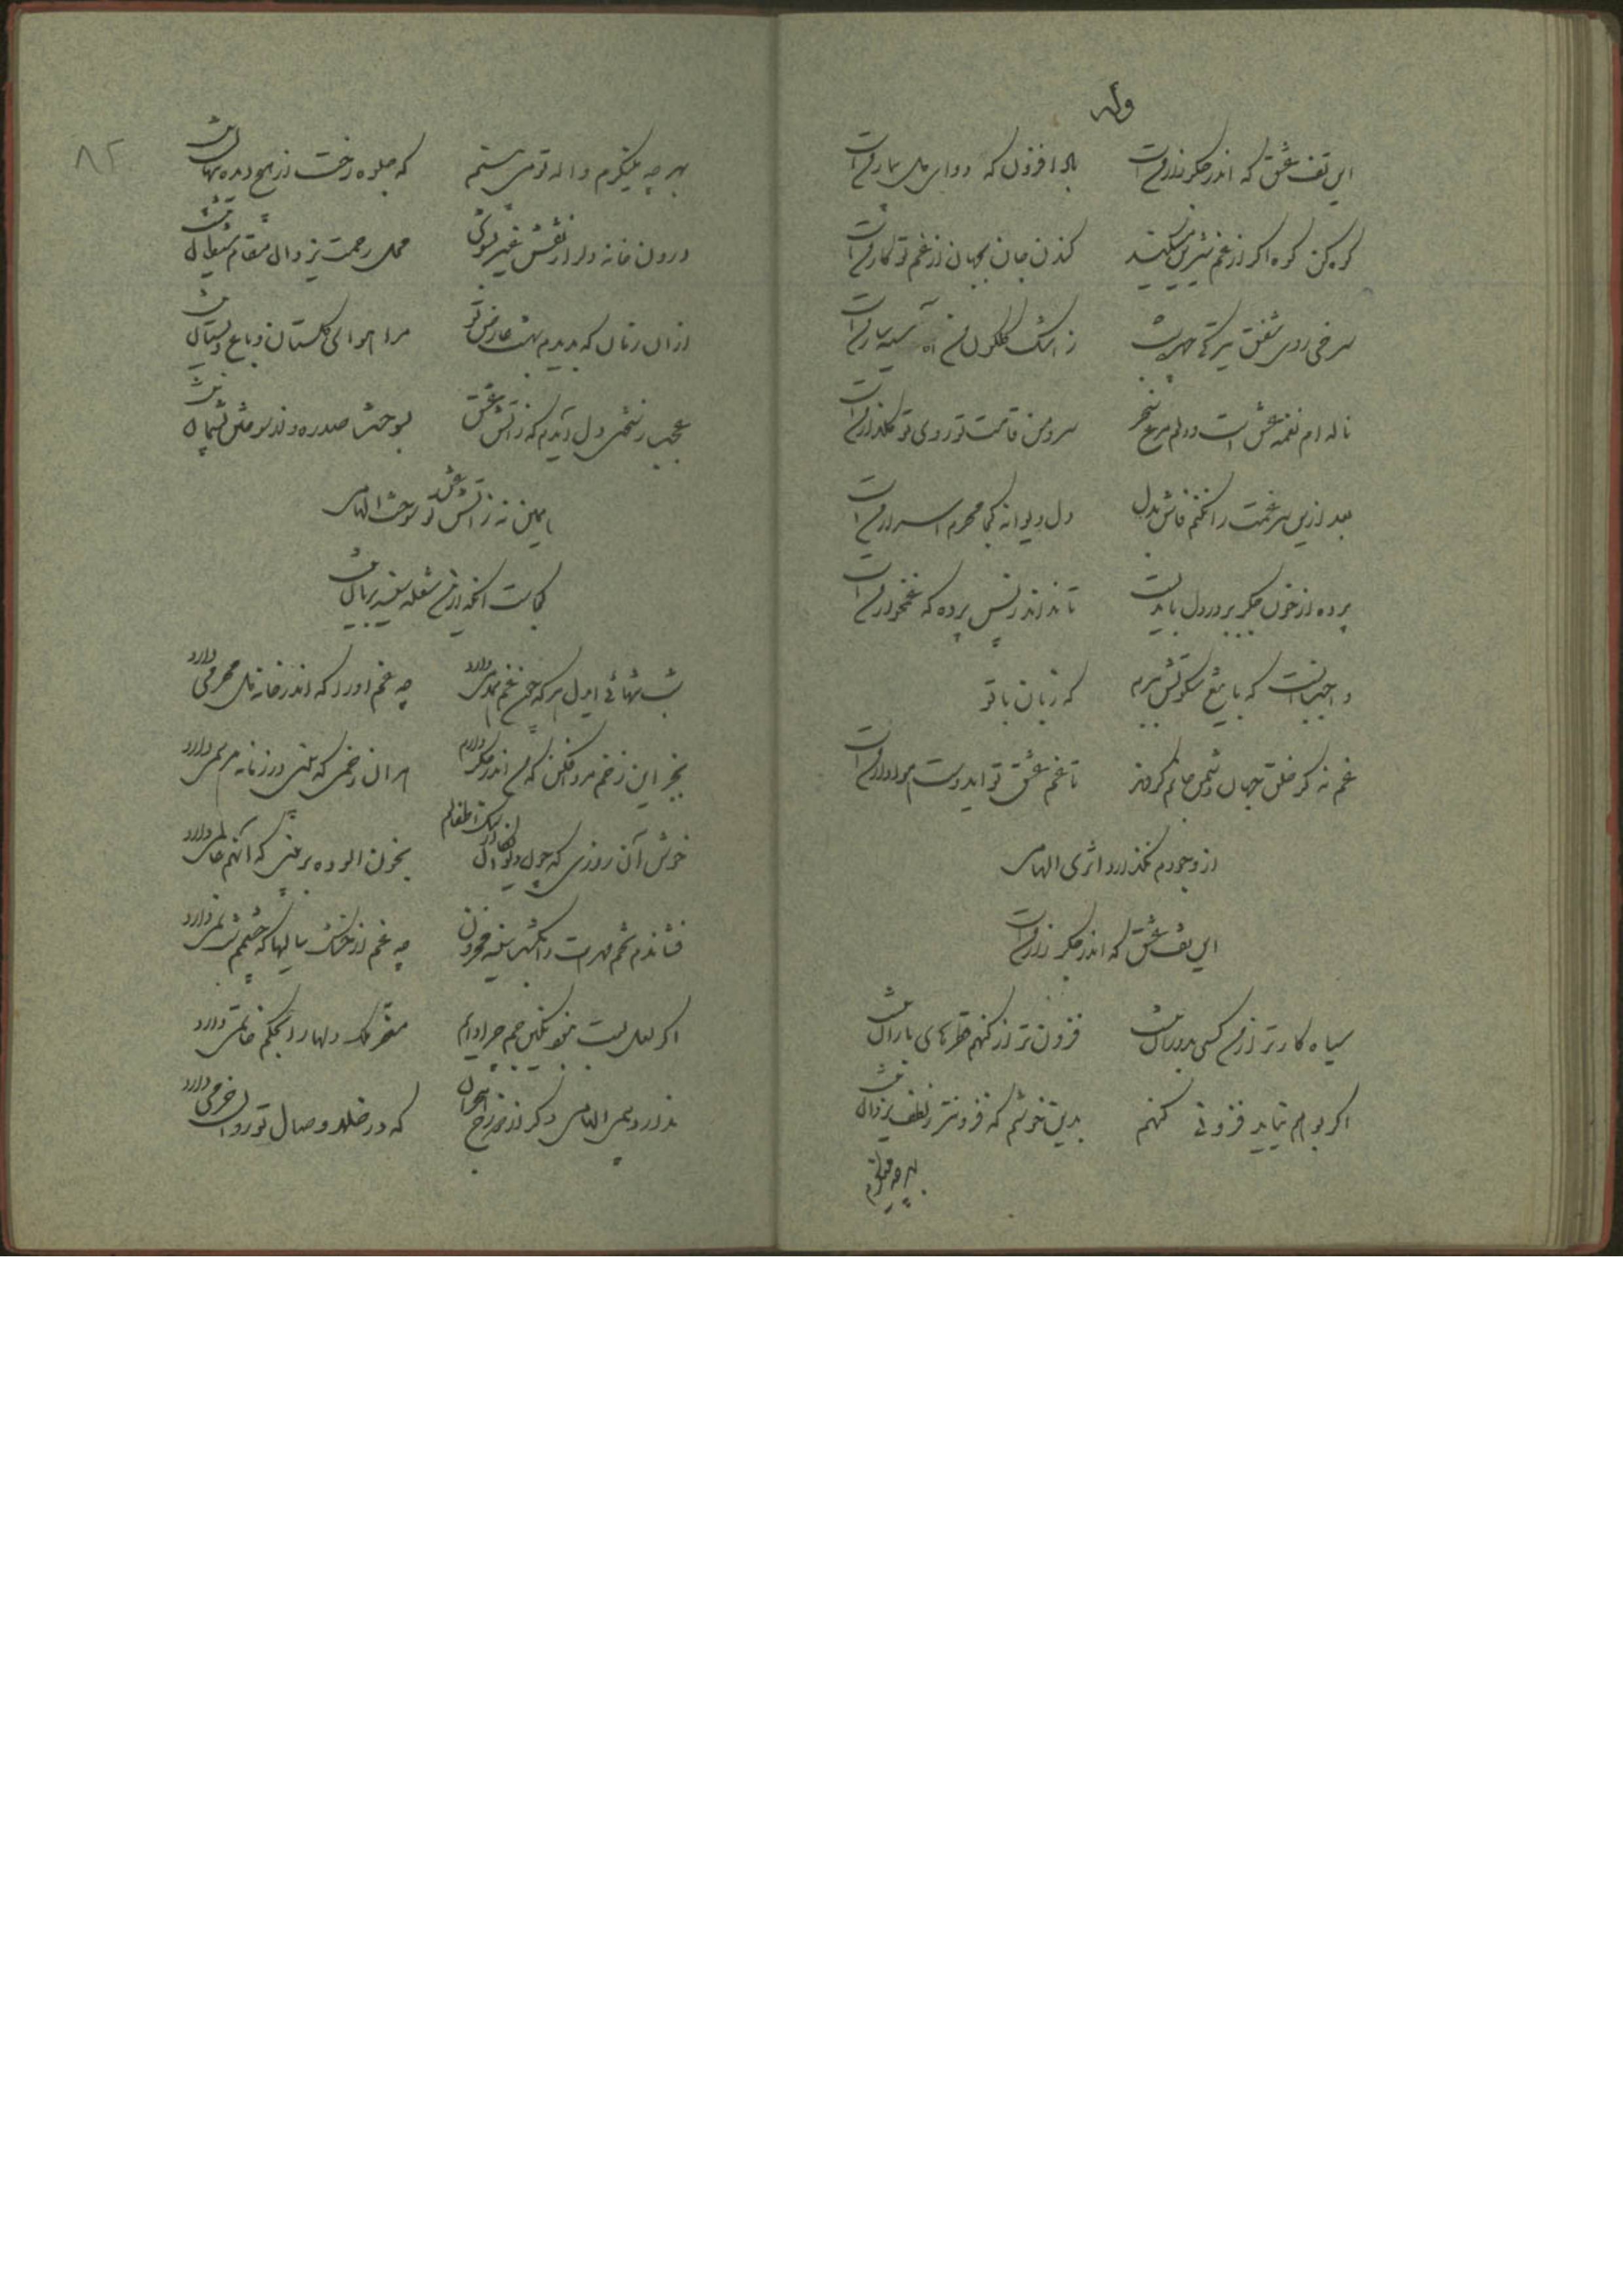 وله
این تف عشق که اندر جگر زار منست
بلا افزون که دوای دل بیمار منست
کوه کن کوه اگر از غم شیرین میکند
کندن جان بجهان از غم تو کار منست
سرخی روی شفق تیرگی چهر شب
ز اشک گلگون من آه سیه بار منست
ناله ام نغمه عشق است و دلم مرغ سحر
سرو من قامت تو روی تو گلذار منست
بعد ازین سر غمت را نکنم فاش بدل
دل دیوانه کجا محرم اسرار منست
پرده از خون جگر بر در دل باید بست
تا نداند پس پرده که غمخوار منست
واجب آنست که با تیغ سکوتش ببرم
که زبان با تو
غم نه گر خلق جهان دشمن جانم گردند
تا غم عشق تو ایدوست هوادار منست
از وجودم نگذارد اثری الهامی
این تف عشق که اندر جگر زار منست
سیاه کارتر از من کسی بدوران نیست
فزون تر از گنهم قطرهای باران نیست
اگر بوهم نیاید فزونی گنهم
بدین خوشم که فزونتر ز لطف یزدان نیست
بهر چه مینگرم
۸۲
بهر چه مینگرم واله تو می بینم
که جلوه رخت از هیچ دیده پنهان نیست
درون خانه دل از نقش غیر بشوی
محل رحمت یزدان مقام شیطان نیست
از آن زمان که بدیدم بهشت عارض تو
مرا هوای گلستان و باغ و بستان نیست
عجب ز سختی دل آیدم که ز آتش عشق
بسوخت صدره و از سوختن پشیمان نیست
همین نه ز آتش عشق تو سوخت الهامی
کجاست آنکه ازین شعله سینه بریان نیست
شب تنهائی ایدل هر که چون غم همدمی دارد
چه غم او را که اندر خانه دل محرمی دارد
بجز این زخم مرد افکن که من اندر جگر دارم
هر آن زخمی که بینی در زمانه مرهمی دارد
خوش آن روزی که چون دیوانگان از سنگ اطفالم
بخون آلوده بر بینی که آنهم عالمی دارد
فشاندم تخم مهرت را بکشت سینه محزون
چه غم از خشک سالیها که چشمم شبنمی دارد
اگر لعل لبت نبود نگین جم چرا دایم
مقر ملک دلها را بحکم خاتمی دارد
ندارد بیم الهامی دگر از دوزخ هجران
که در خلد وصال تو روان خرمی دارد